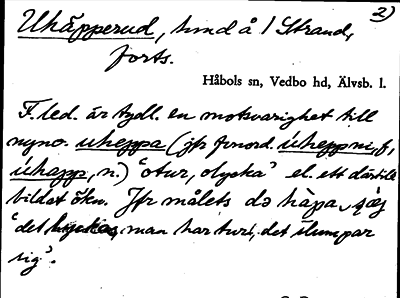 2)
Uhäpperud, hmd å 1 Strand,
forts.
Håbols sn, Vedbo hd, Älvsb. l.
F. led. är tydl. en motsvarighet till
nyno. uheppa (jfr fvnord. úheppni, f,
úhapp, n.) 'otur, olycka' el. ett därtill
bildat ökn. Jfr målets də häpa
'det lyckas, man har tur, det slumpar
sig'.